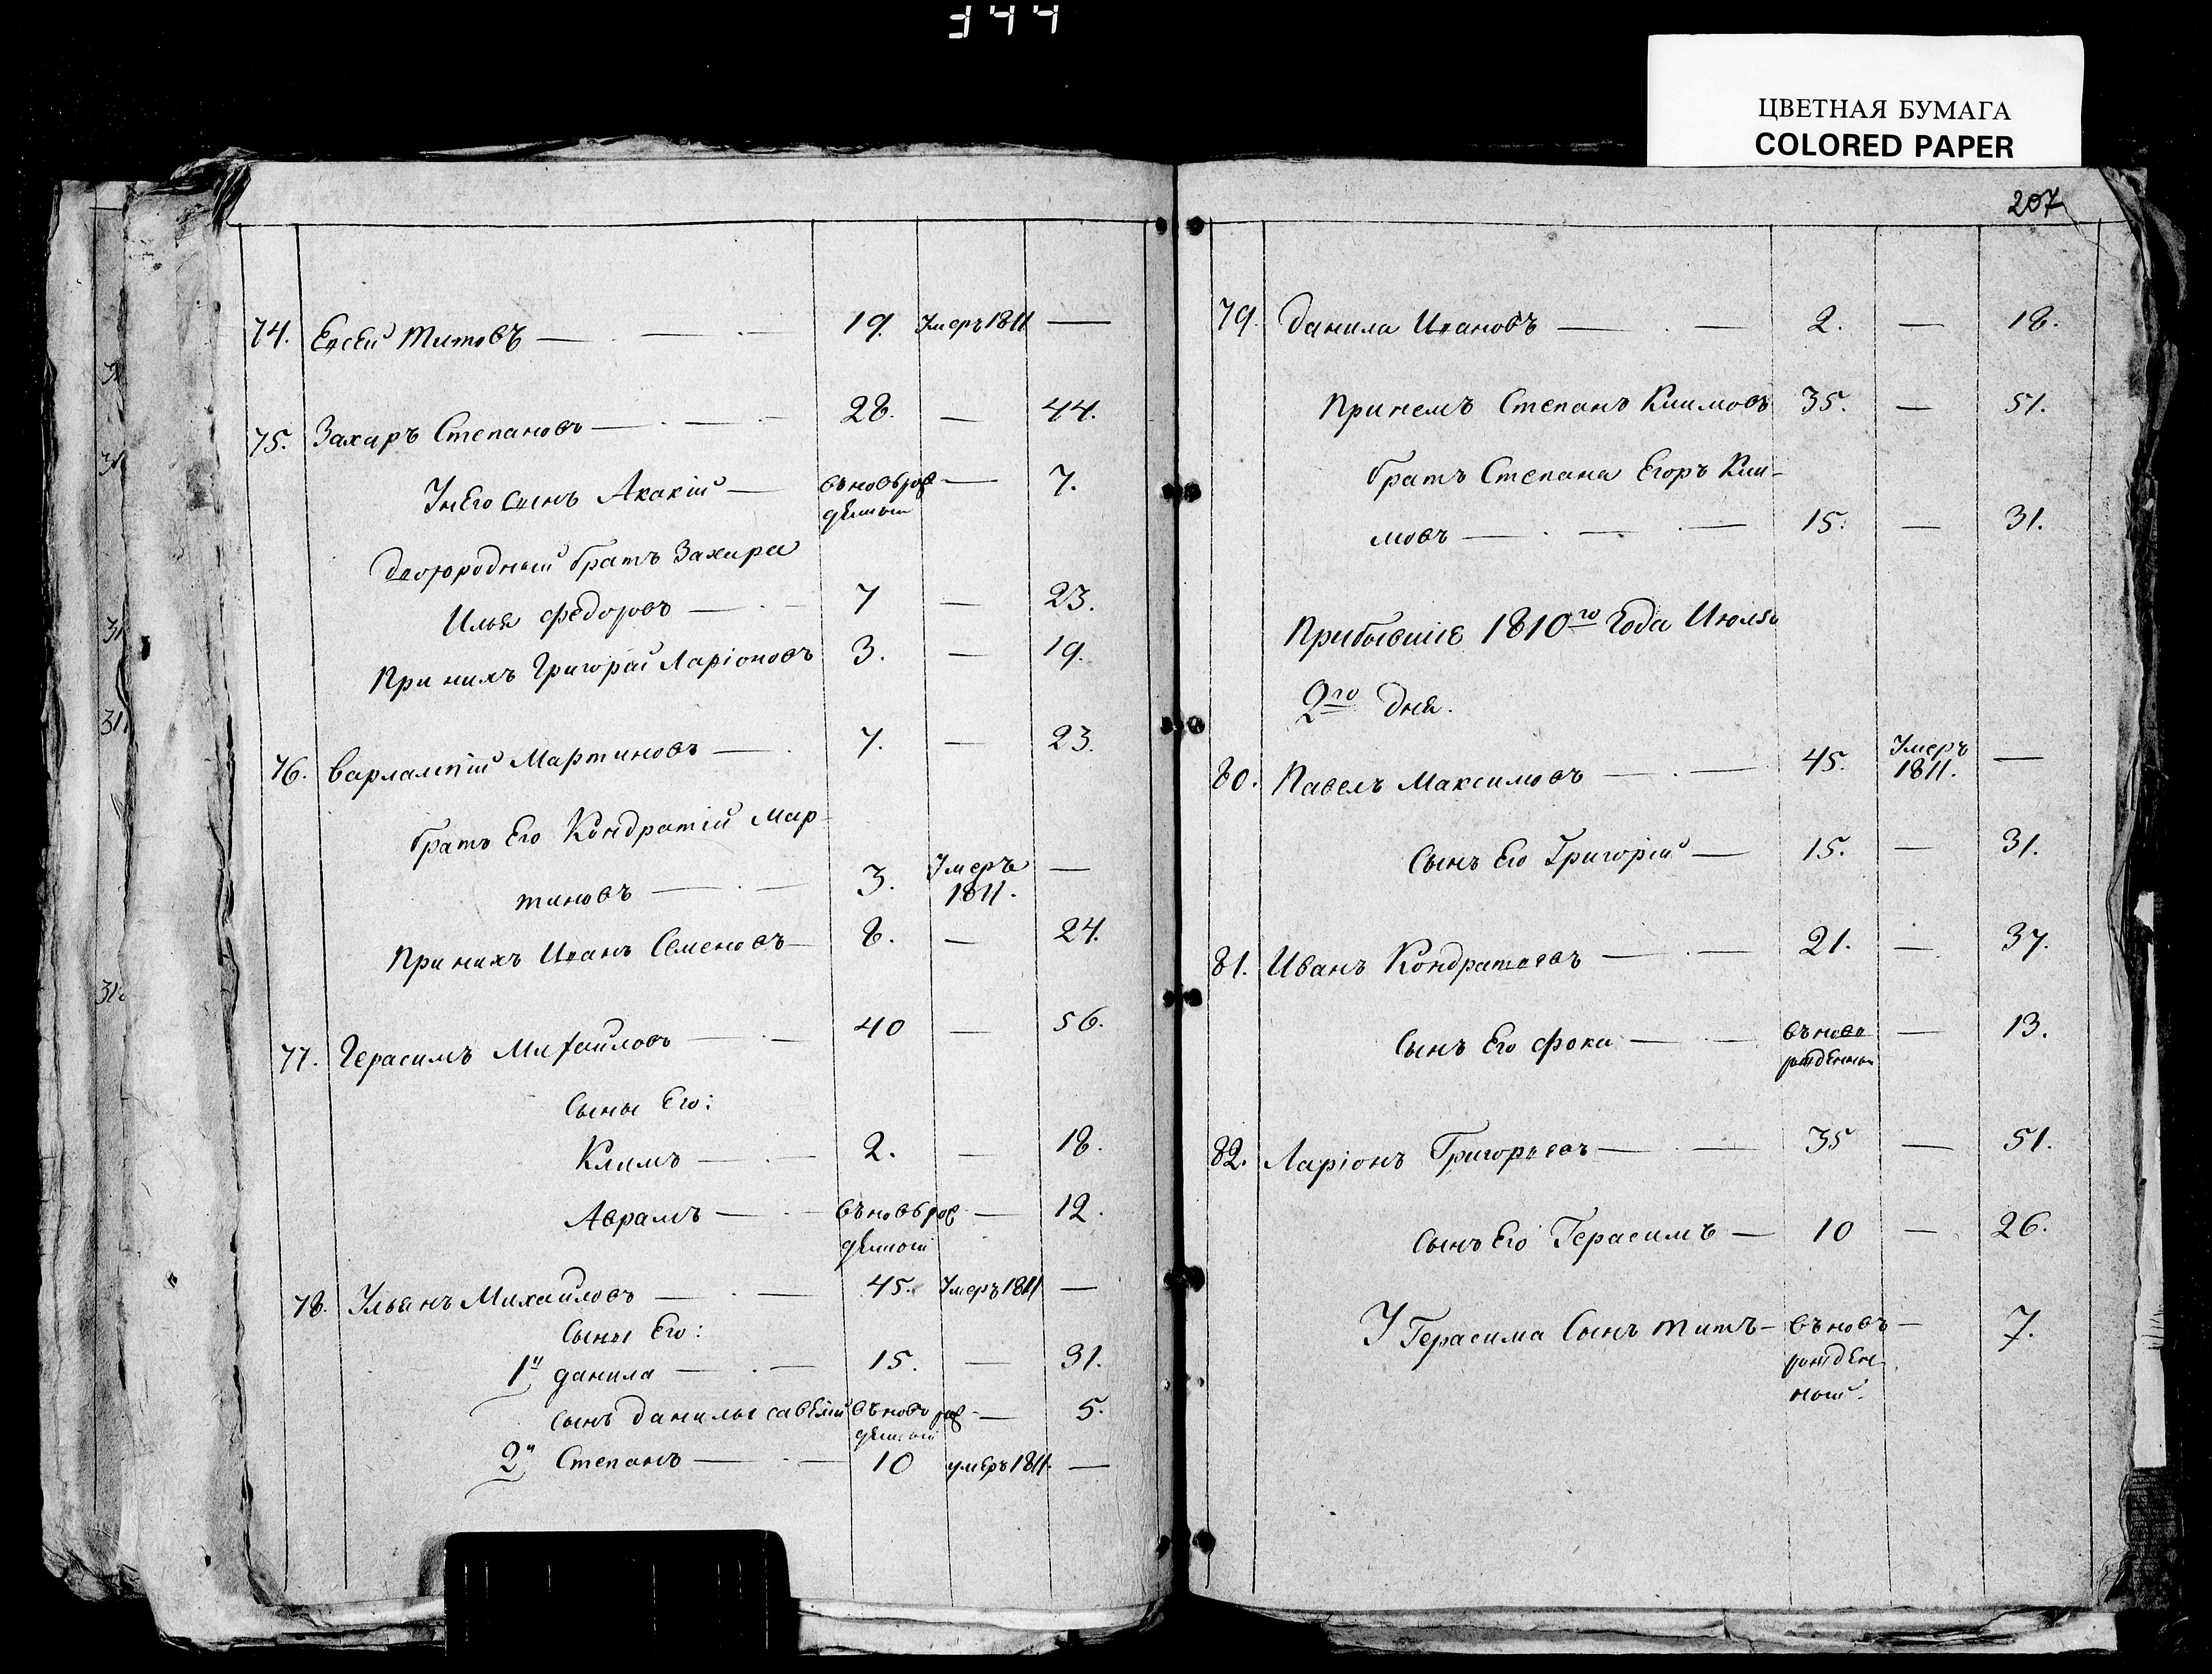 344
ЦВЕТНАЯ БУМАГА
COLORED PAPER
74. Евсей Титовъ — 19. Умеръ 1811 —
75. Захаръ Степановъ — 28. — 44.
У Него Сынъ Акакій — въновьрож — 7.
денный
Двоюродный братъ Захара
Илья Федоровъ — 7 — 23.
При нихъ Григорай Ларіоновъ 3. — 19.
76. Варлампій Мартиновъ — 7. — 23.
братъ Его Кондратій Мар-
тиновъ — 3. Умеръ 1811. —
При нихъ Иванъ Семеновъ — 8. — 24.
77. Герасимъ Михайловъ — 40 — 56.
Сыны Его:
Климъ — 2. — 18.
Аврамъ — въновьрож — 12.
денной
78. Ульянъ Михайловъ — 45. Умеръ 1811 —
Сыны Его:
1й данила — 15. — 31.
сынъ данилы савелій въновь рож — 5.
денной
2й Степанъ — 10 умеръ 1811. —
207
79. Данила Ивановъ — 2. — 18.
При немъ Степанъ Климовъ 35. — 51.
братъ Степана Егоръ Кли-
мовъ — 15. — 31.
Прибывшіе 1810го Года Июля
2го дня.
80. Павелъ Максимовъ — 45. Умеръ 1811. —
Сынъ Его Григорій — 15. — 31.
81. Иванъ Кондратьевъ — 21. — 37.
Сынъ Его Фока — въново — 13.
рожденный
82. Ларіонъ Григорьевъ — 35 — 51.
сынъ Его Герасимъ — 10 — 26.
У Герасима Сынъ Титъ — въновъ — 7.
рожден
ной.